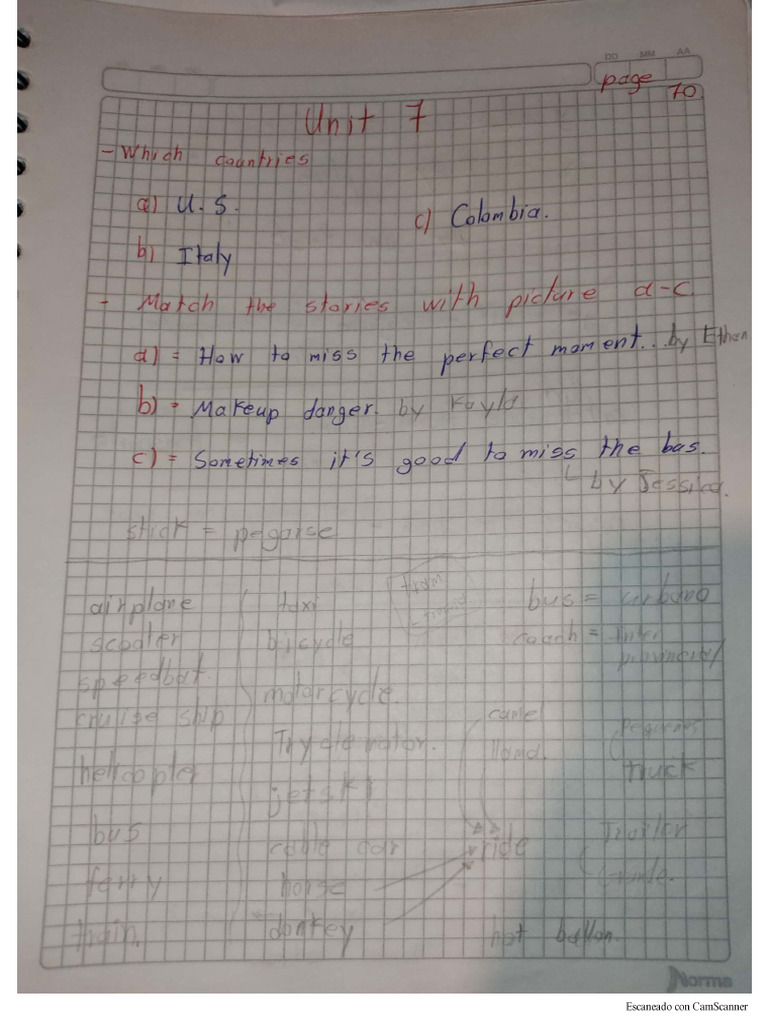 DD MM AA
page 70
Unit 7
- Which countries
a) U.S.
c) Colombia.
b) Italy
- Match the stories with picture a-c.
a) = How to miss the perfect moment... by Ethan
b) = Makeup danger. by Kayla
c) = Sometimes it's good to miss the bus.
by Jessica.
stick = pegarse
airplane
scooter
speedbat.
cruise ship
helicopter
bus
ferry
train.
taxi
bicycle
motorcycle.
jetski
cable car
horse
donkey
tram
bus = urbano
coach = inter
provincial
camel
llama.
ride
pequeños
truck
Trailer
hot ballon.
Norma
Escaneado con CamScanner